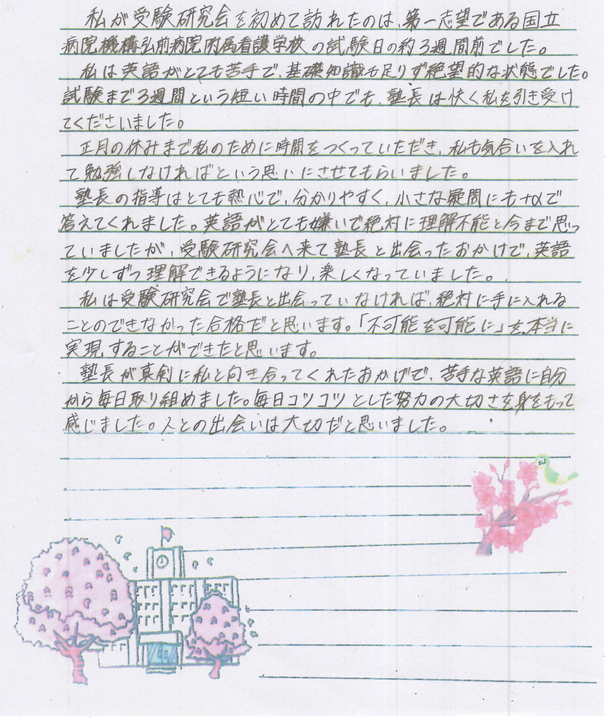 私が受験研究会を初めて訪れたのは、第一志望である国立
病院機構弘前病院附属看護学校の試験日の約3週間前でした。
私は英語がとても苦手で、基礎知識も足りず絶望的な状態でした。
試験まで3週間という短い時間の中でも、塾長は快く私を引き受け
てくださいました。
正月の休みまで私のために時間をつくっていただき、私も気合いを入れ
て勉強しなければという思いにさせてもらいました。
塾長の指導はとても熱心で、分かりやすく、小さな疑問にも+αで
答えてくれました。英語がとても嫌いで絶対に理解不能と今まで思っ
ていましたが、受験研究会へ来て塾長と出会ったおかげで、英語
を少しずつ理解できるようになり、楽しくなっていました。
私は受験研究会で塾長と出会っていなければ、絶対に手に入れる
ことのできなかった合格だと思います。「不可能を可能に」を、本当に
実現することができたと思います。
塾長が真剣に私と向き合ってくれたおかげで、苦手な英語に自分
から毎日取り組めました。毎日コツコツとした努力の大切さを身をもって
感じました。人との出会いは大切だと思いました。